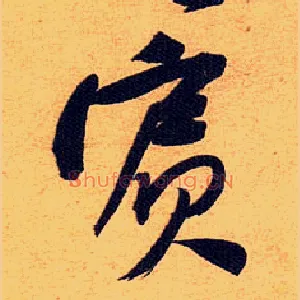 賓
Shufawang.CN